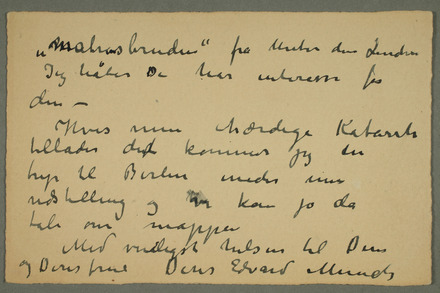 "Matrosbruden" fra Unter den Linden
Jeg håber De har interesse for
den —
Hvis min hærdige Katarrh
tillader det kommer jeg en
tur til Berlin under min
udstilling og vi kan jo da
tale om mappen
Med venligst hilsen til Dem
og Deres frue Deres Edvard Munch